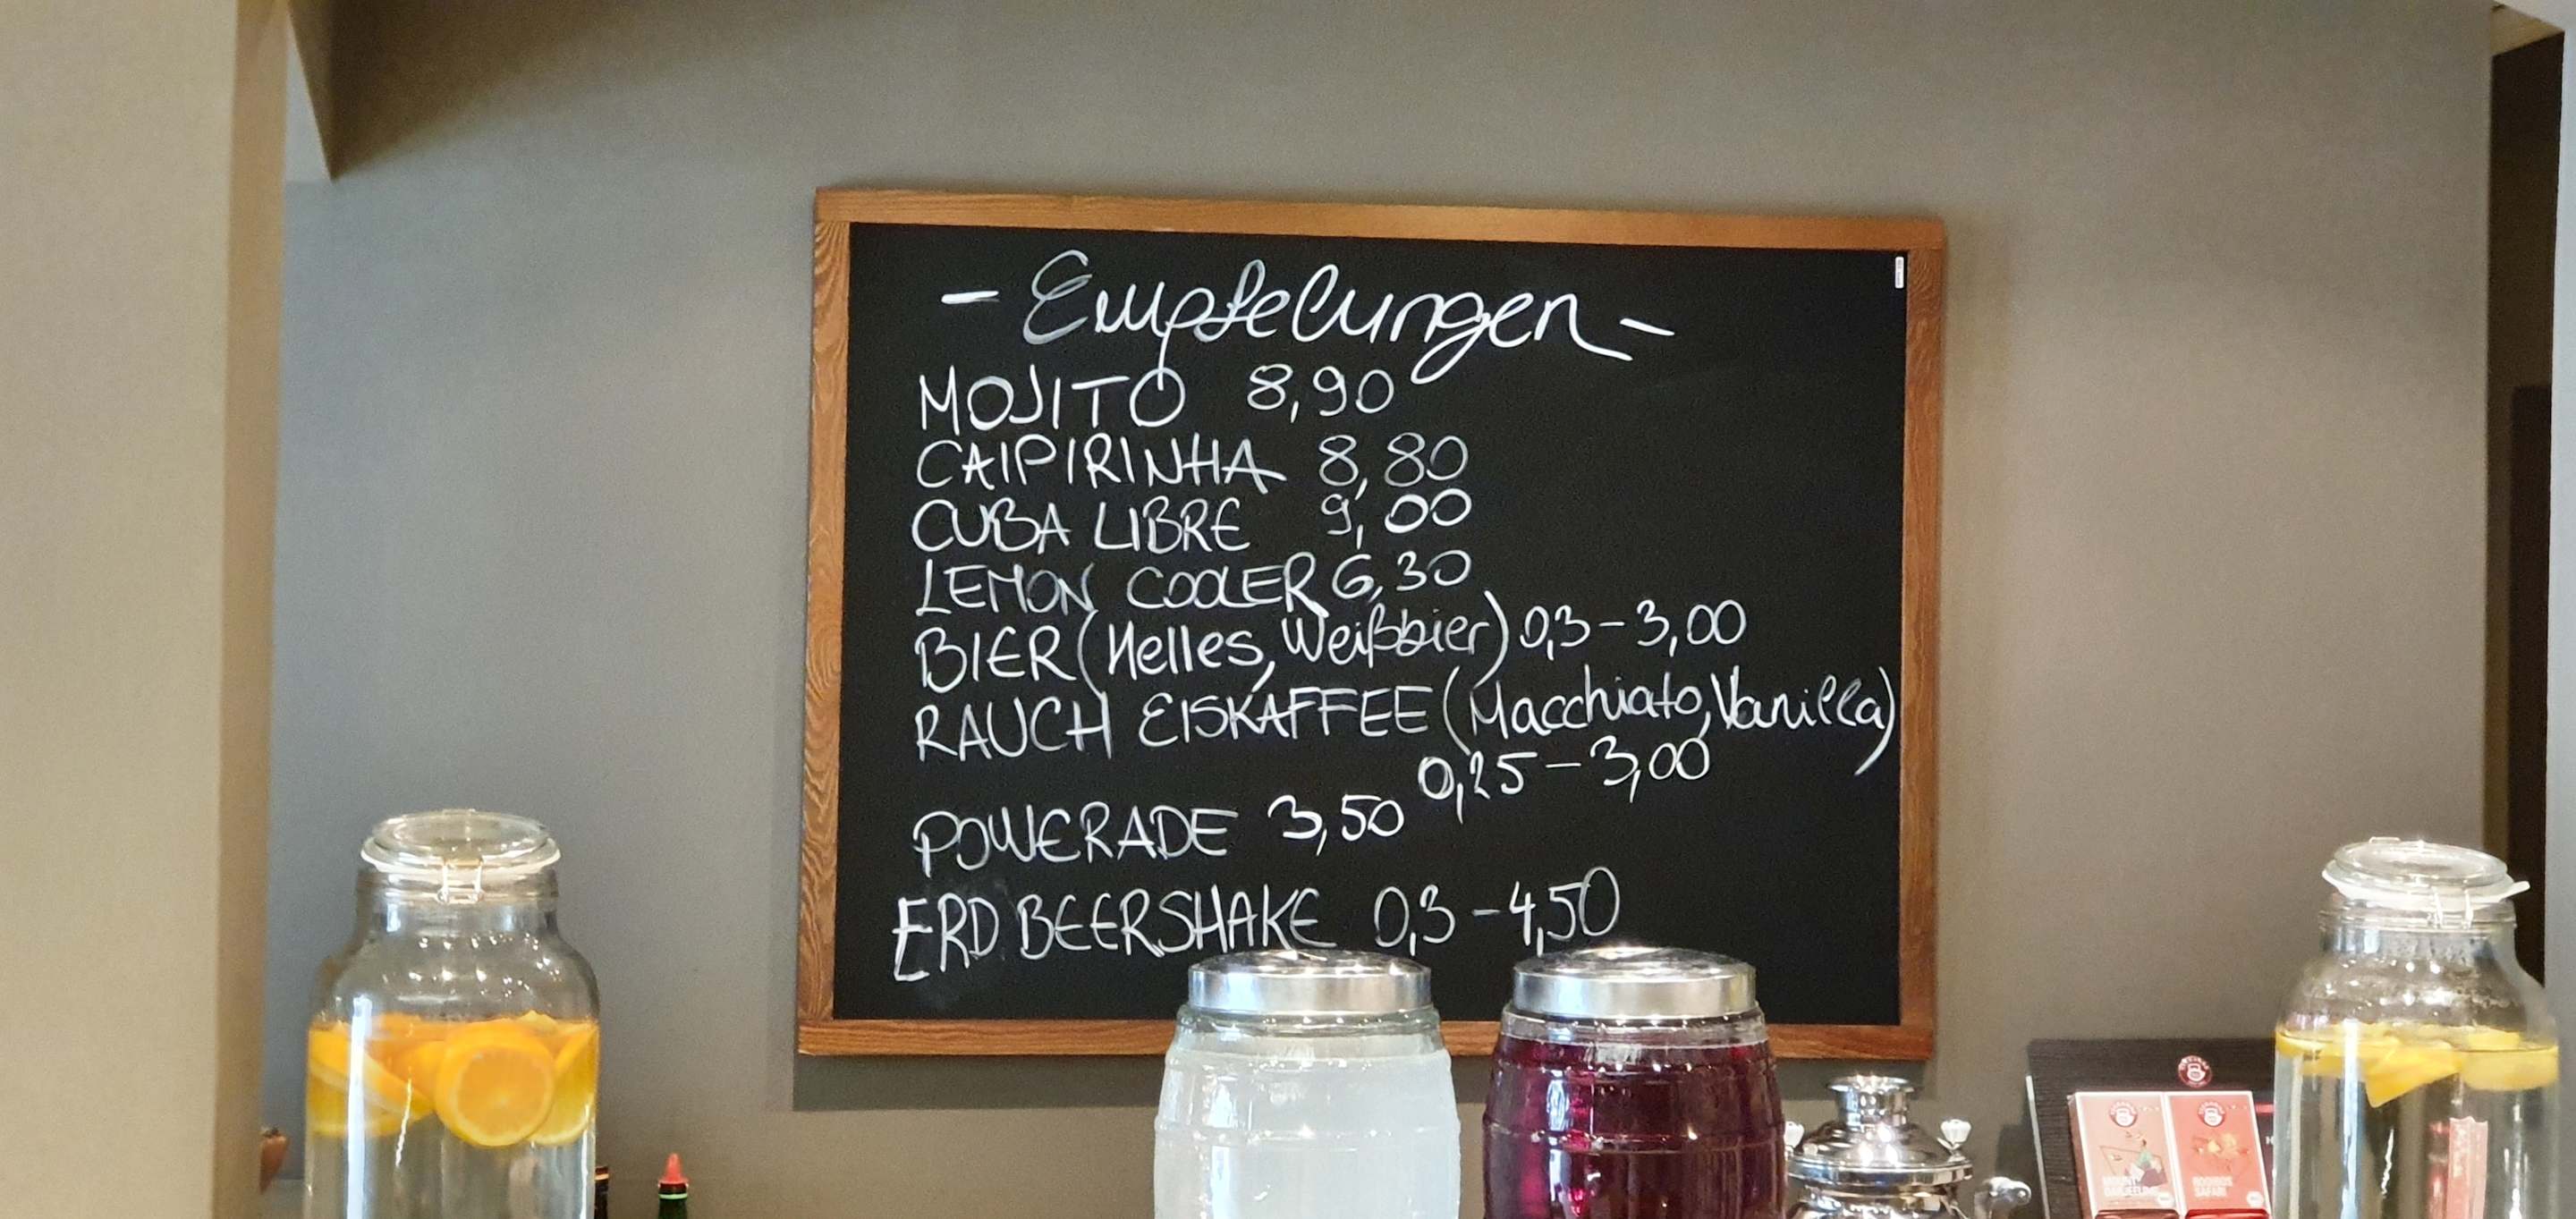 - Empfelungen -
MOJITO 8,90
CAIPIRINHA 8,80
CUBA LIBRE 9,00
LEMON COOLER 6,30
BIER (Helles, Weißbier) 0,3 - 3,00
RAUCH EISKAFFEE (Macchiato, Vanilla)
0,25 - 3,00
POWERADE 3,50
ERDBEERSHAKE 0,3 - 4,50
MOUNT
DARJEELING
ROOIBOS
SAFARI